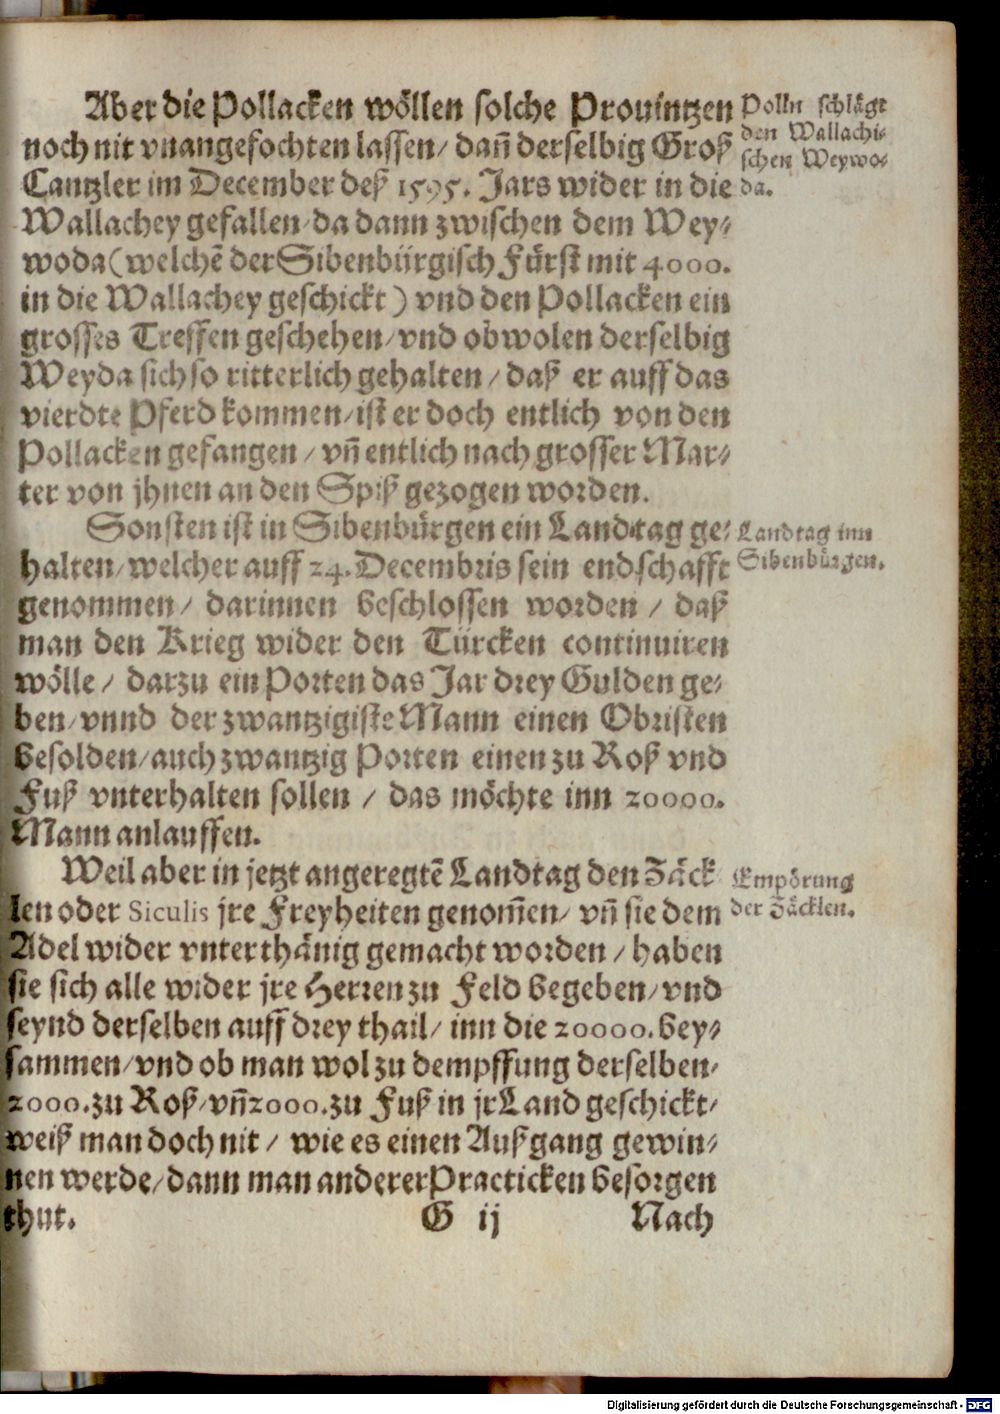 Aber die Pollacken wöllen solche Prouintzen
noch nit vnangefochten lassen/ dañ derselbig Groß
Cantzler im December deß 1595. Jars wider in die
Wallachey gefallen/ da dann zwischen dem Wey⸗
woda (welchẽ der Sibenbürgisch Fürst mit 4000.
in die Wallachey geschickt) vnd den Pollacken ein
grosses Treffen geschehen/ vnd obwolen derselbig
Weyda sich so ritterlich gehalten/ daß er auff das
vierdte Pferd kommen/ ist er doch entlich von den
Pollacken gefangen/ vñ entlich nach grosser Mar⸗
ter von jhnen an den Spiß gezogen worden.
Polln schlägt
den Wallachi⸗
schen Weywo⸗
da.
Sonsten ist in Sibenbürgen ein Landtag ge⸗
halten/ welcher auff 24. Decembris sein endschafft
genommen/ darinnen beschlossen worden/ daß
man den Krieg wider den Türcken continuiren
wölle/ darzu ein Porten das Jar drey Gulden ge⸗
ben/ vnnd der zwantzigiste Mann einen Obristen
besolden/ auch zwantzig Porten einen zu Roß vnd
Fuß vnterhalten sollen/ das möchte inn 20000.
Mann anlauffen.
Landtag inn
Sibenbürgen.
Weil aber in jetzt angeregtẽ Landtag den Zäck
len oder Siculis jre Freyheiten genom̃en/ vñ sie dem
Adel wider vnterthänig gemacht worden/ haben
sie sich alle wider jre Herren zu Feld begeben/ vnd
seynd derselben auff drey thail/ inn die 20000. bey⸗
sammen/ vnd ob man wol zu dempffung derselben/
2000. zu Roß/ vñ 2000. zu Fuß in jr Land geschickt/
weiß man doch nit/ wie es einen Außgang gewin⸗
nen werde/ dann man anderer Practicken besorgen
thut.
Empörung
der Zäcklen.
G ij
Nach
Digitalisierung gefördert durch die Deutsche Forschungsgemeinschaft - DFG